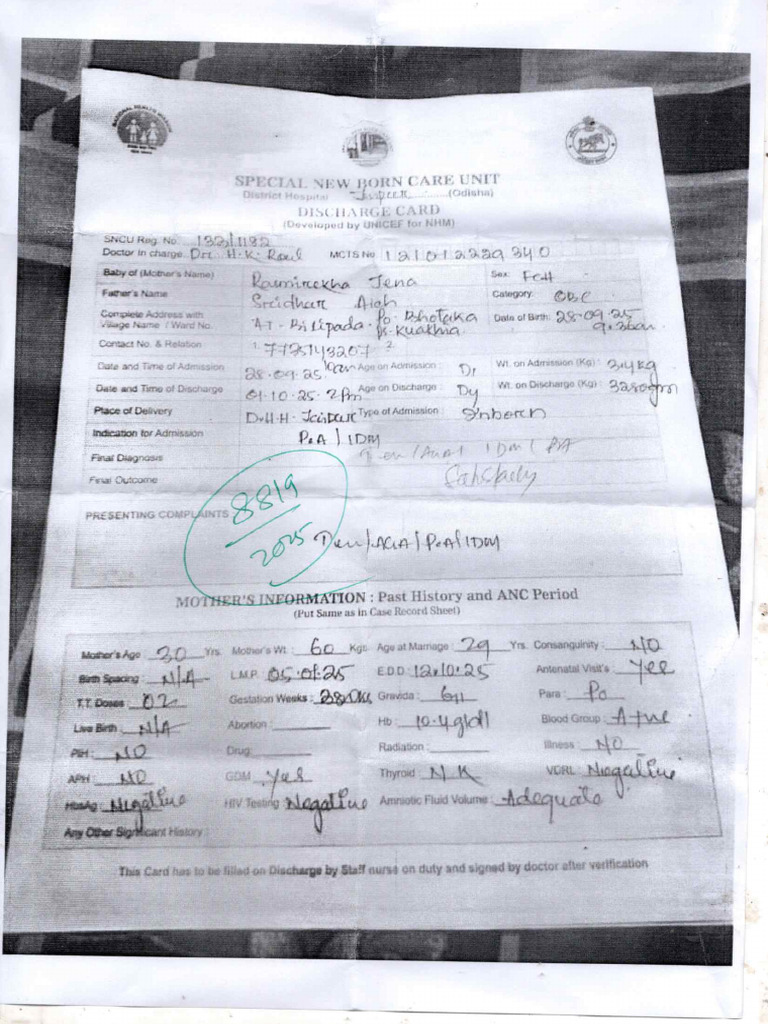 SPECIAL NEW BORN CARE UNIT
District Hospital Jajpur (Odisha)
DISCHARGE CARD
(Developed by UNICEF for NHM)
SNCU Reg. No. 132/1182
Doctor In charge Dr. H.K. MCTS No 121012229340
Baby of (Mother's Name) Jena Sex: FCH
Father's Name Sridhar Category: OBC
Complete Address with Village Name / Ward No. AT- Po- Date of Birth: 28-09-25 9.36am
Contact No. & Relation 1. 7735143207 2.
Date and Time of Admission 28.09.25 10am Age on Admission : D1 Wt. on Admission (Kg) : 3.4kg
Date and Time of Discharge 01.10.25-2pm Age on Discharge : D4 Wt. on Discharge (Kg) : 3280gm
Place of Delivery D.H.H. Jajpur Type of Admission : Inborn
Indication for Admission PeA / IDM
Final Diagnosis / IDM /
Final Outcome
PRESENTING COMPLAINTS
8819
2025
/AGA/PeA/IDM
MOTHER'S INFORMATION : Past History and ANC Period
(Put Same as in Case Record Sheet)
Mother's Age : 30 Yrs. Mother's Wt. 60 Kgs. Age at Marriage : 29 Yrs. Consanguinity : NO
Birth Spacing : N/A L.M.P: 05.01.25 E.D.D : 12.10.25 Antenatal Visit's : Yes
T.T. Doses : 02 Gestation Weeks : Gravida : G1 Para : Po
Live Birth : N/A Abortion : Hb : 10.4g/dl Blood Group : A+ve
PIH : NO Drug: Radiation : Illness : NO
APH : NO GDM : Yes Thyroid : N.K VDRL : Negative
HbsAg : Negative HIV Testing : Negative Amniotic Fluid Volume : Adequate
Any Other Significant History :
This Card has to be filled on Discharge by Staff nurse on duty and signed by doctor after verification